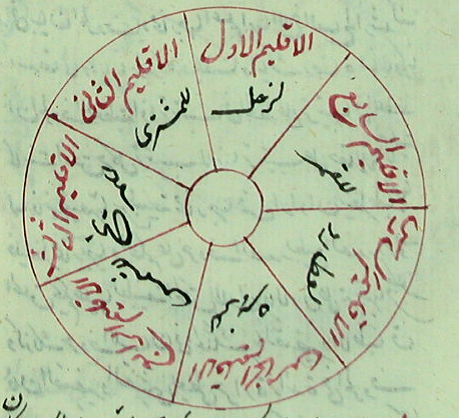 الاقليم الاول
لزحل
الاقليم الثاني
للمشتري
الاقليم الثالث
الاقليم الرابع
للشمس
الاقليم الخامس
للزهره
الاقليم السادس
لعطارد
الاقليم السابع
للقمر